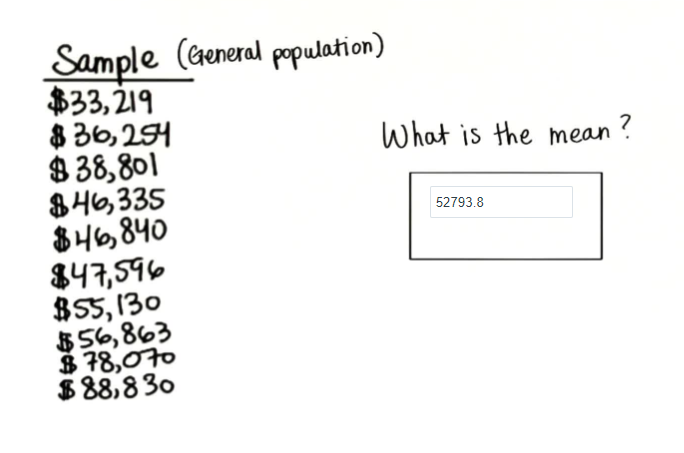 Sample (General population)
$33,219
$36,254
$38,801
$46,335
$46,840
$47,596
$55,130
$56,863
$78,070
$88,830
What is the mean?
52793.8